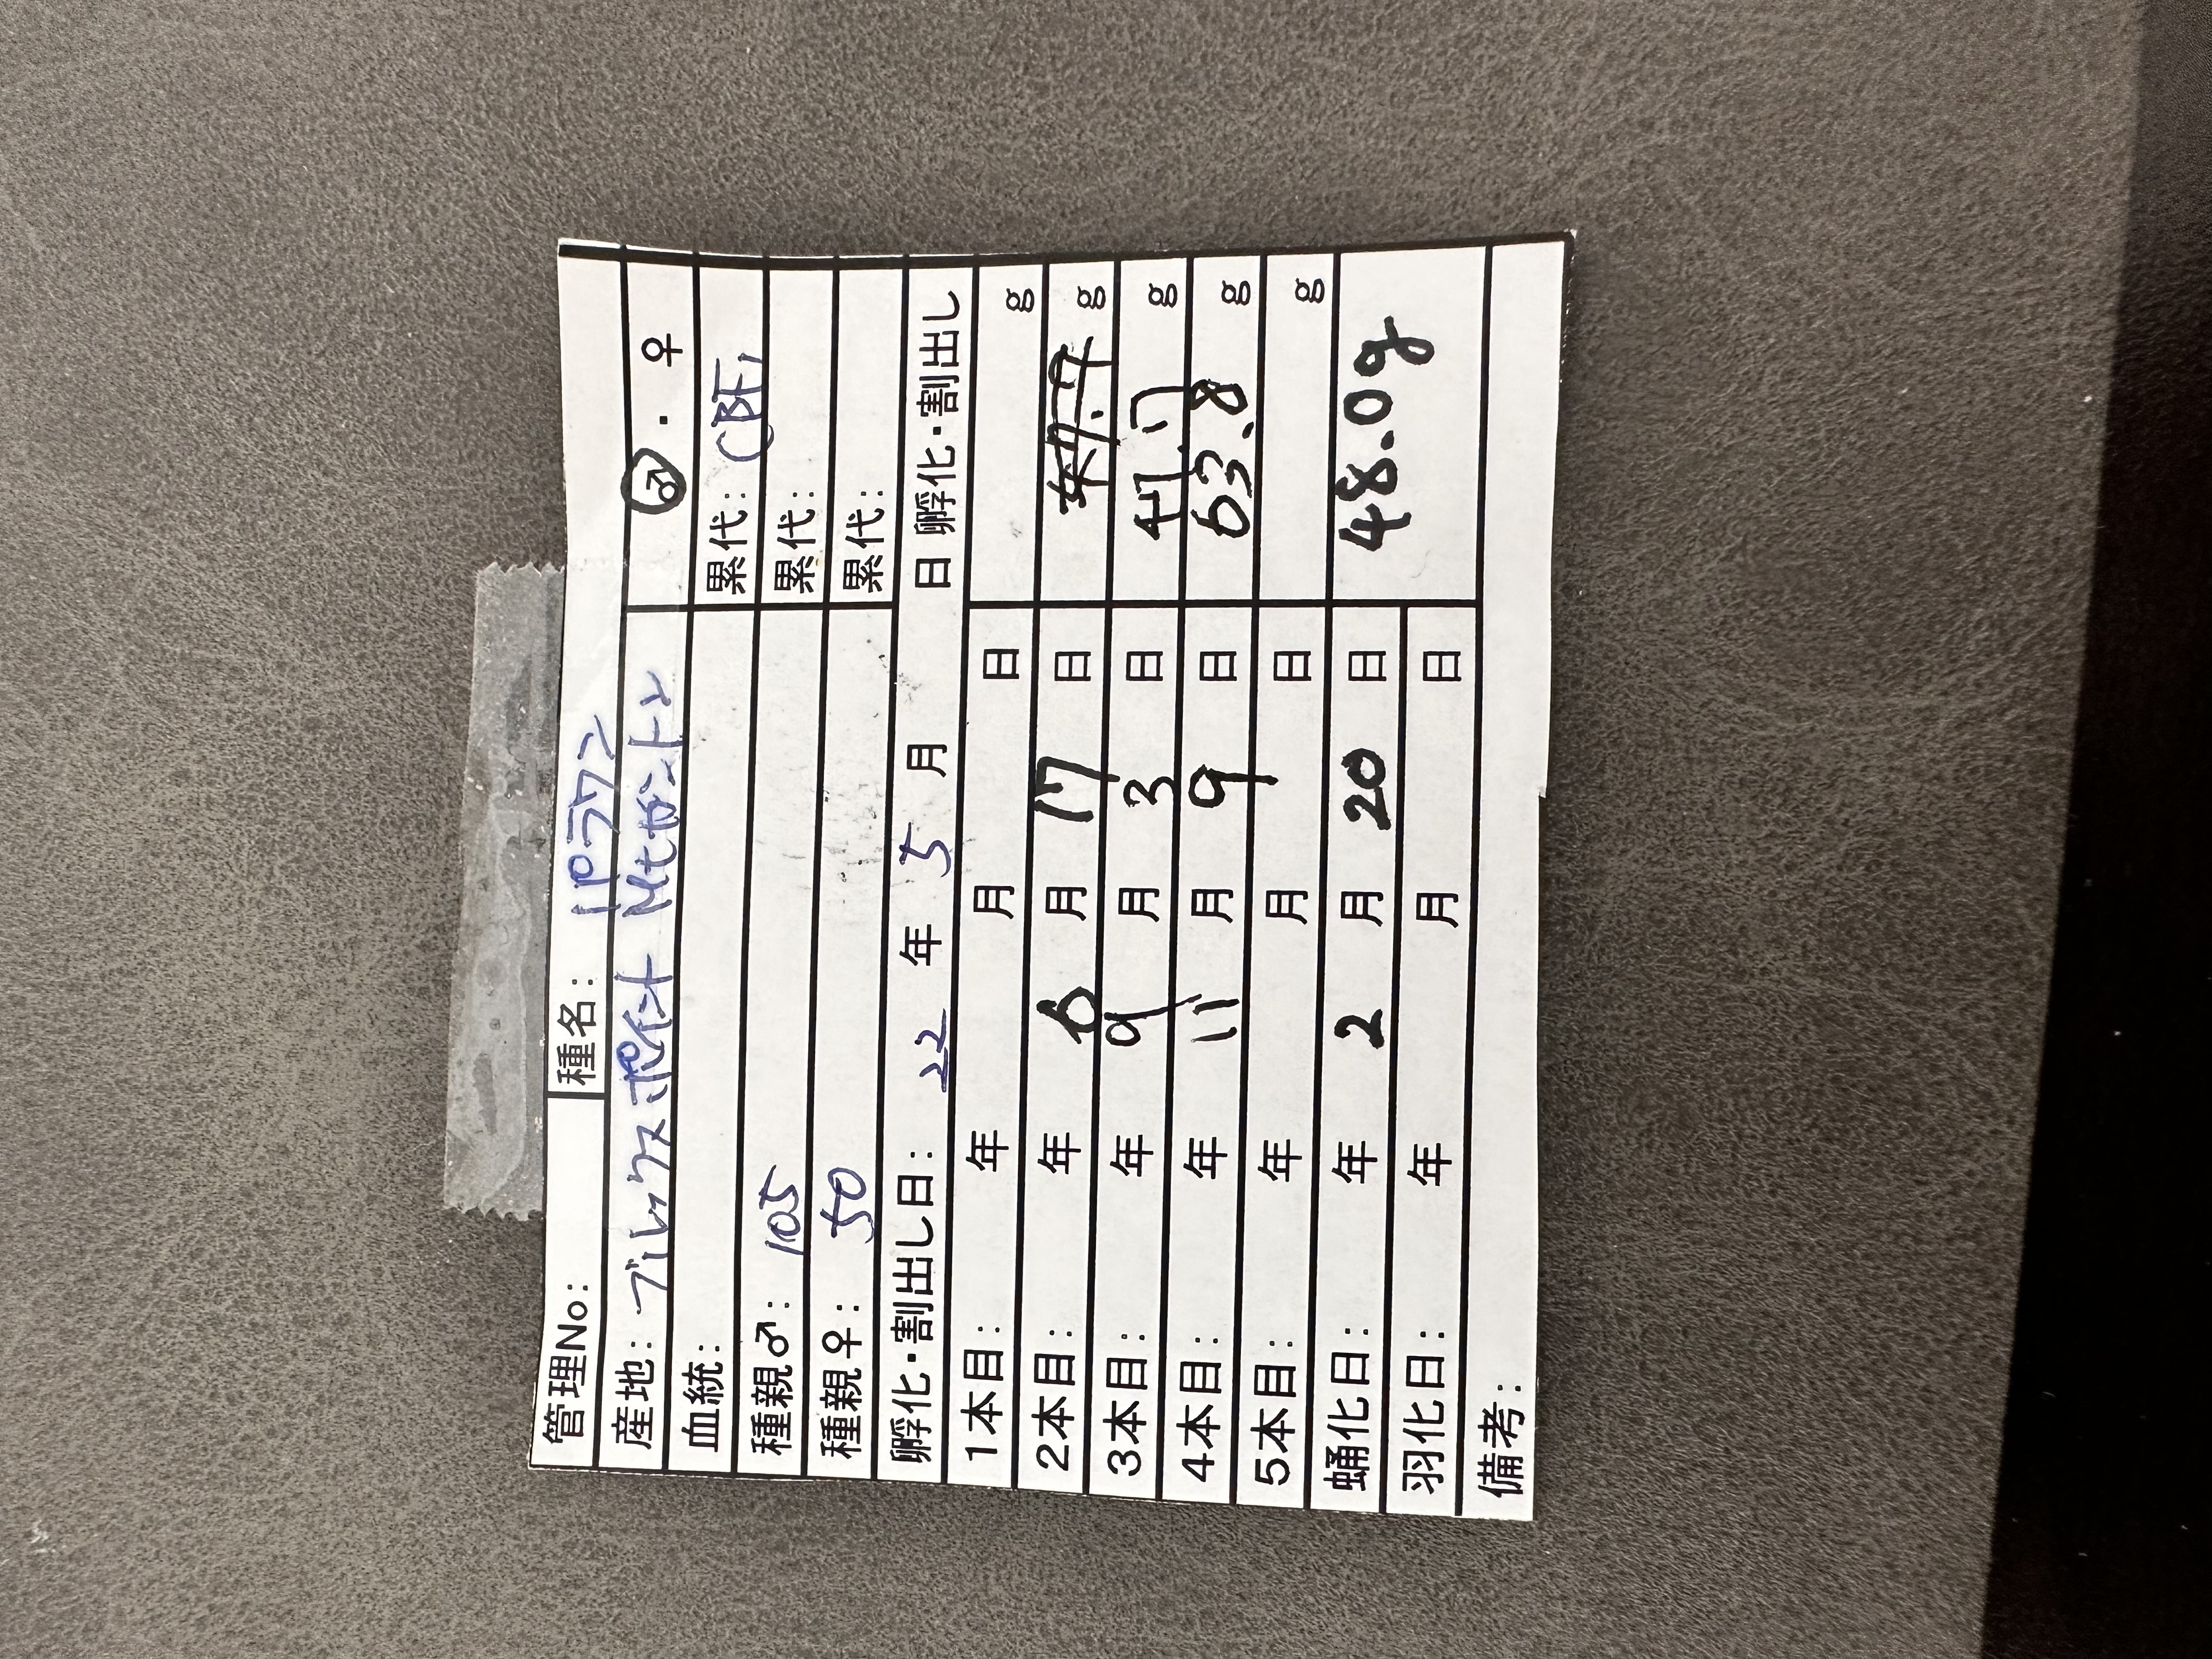 管理No: 種名: パラワン
産地: ブルックスポイント Mtガントン ♂ ・ ♀
血統: 累代: CBF1
種親♂: 105 累代:
種親♀: 50 累代:
孵化・割出し日: 22 年 5 月 日 孵化・割出し
1本目: 年 月 日 g
2本目: 年 6 月 17 日 g
3本目: 年 9 月 3 日 g
4本目: 年 11 月 9 日 63.8 g
5本目: 年 月 日 g
蛹化日: 年 2 月 20 日 48.0g
羽化日: 年 月 日
備考: